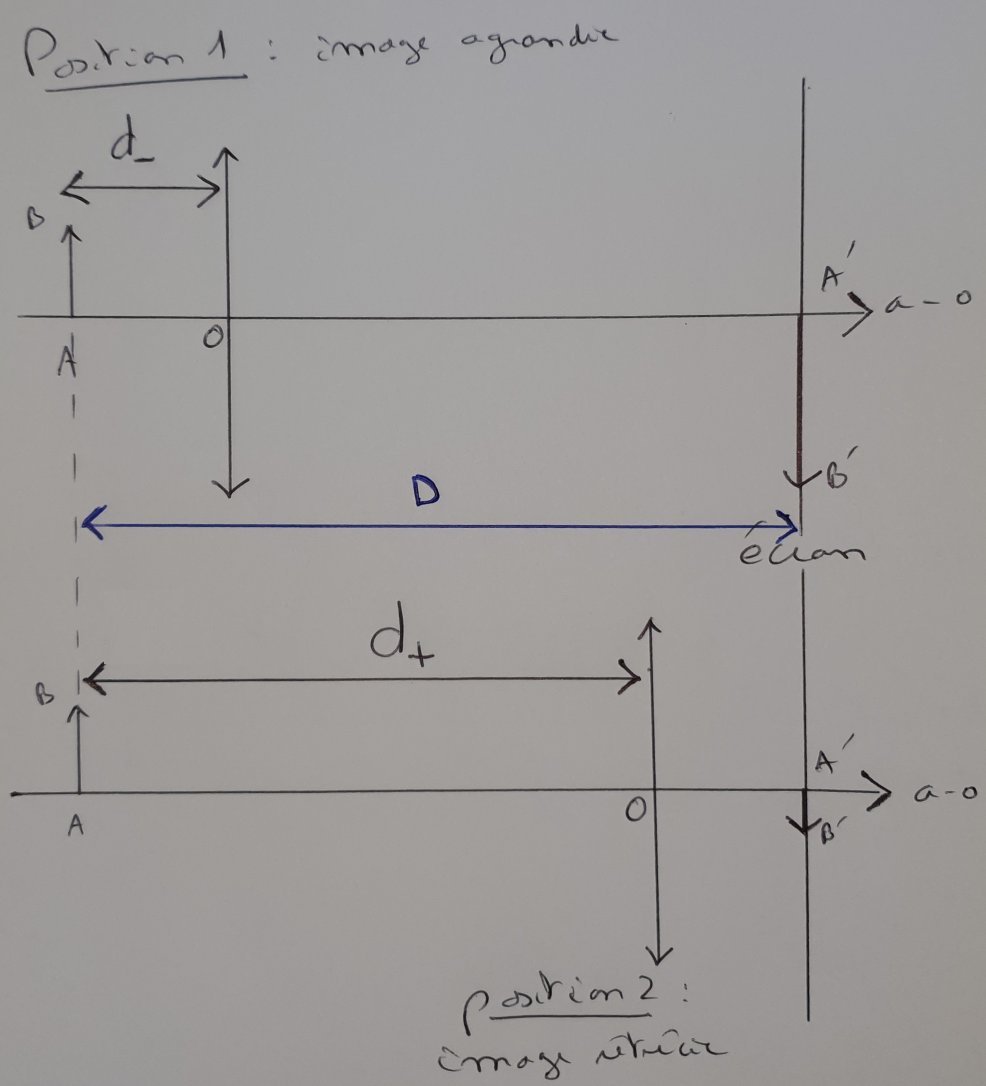 Position 1 : image agrandie
d_
B
A'
a-o
O
A
B'
D
écran
d+
B
A'
a-o
O
A
B'
position 2 :
image rétrécie